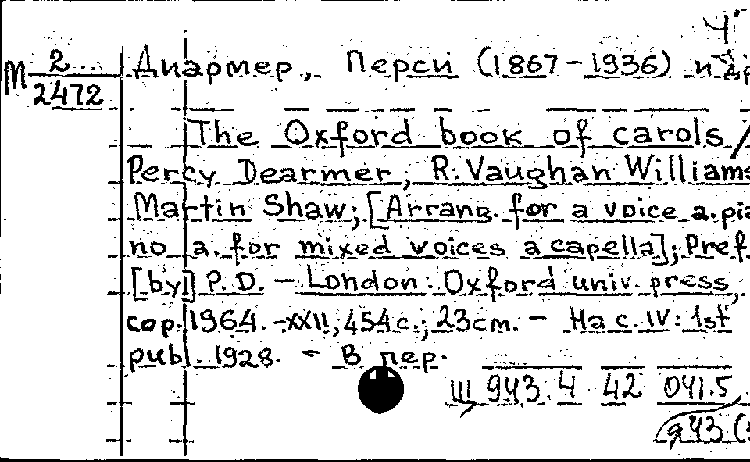 М 2... Диармер, Перси (1867-1936) и др
2472
The Oxford book of carols /
Percy Dearmer, R. Vaughan Williams
Martin Shaw; [Arrang. for a voice a. pia
no a. for mixed voices a capella]; Pref.
[by] P.D. - London: Oxford univ. press,
cop. 1964. - XXII, 454 с.; 23 cm. - На с. IV: 1st
publ. 1928. - В пер.
Ш 943.4 42 041.5
943